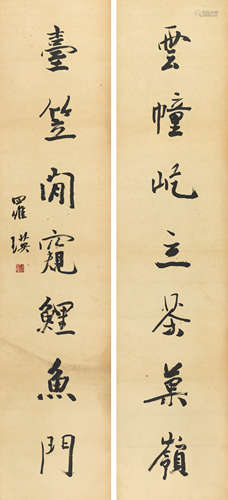 雲幢屹立茶菓嶺
臺笠閒窺鯉魚門
羅瑛